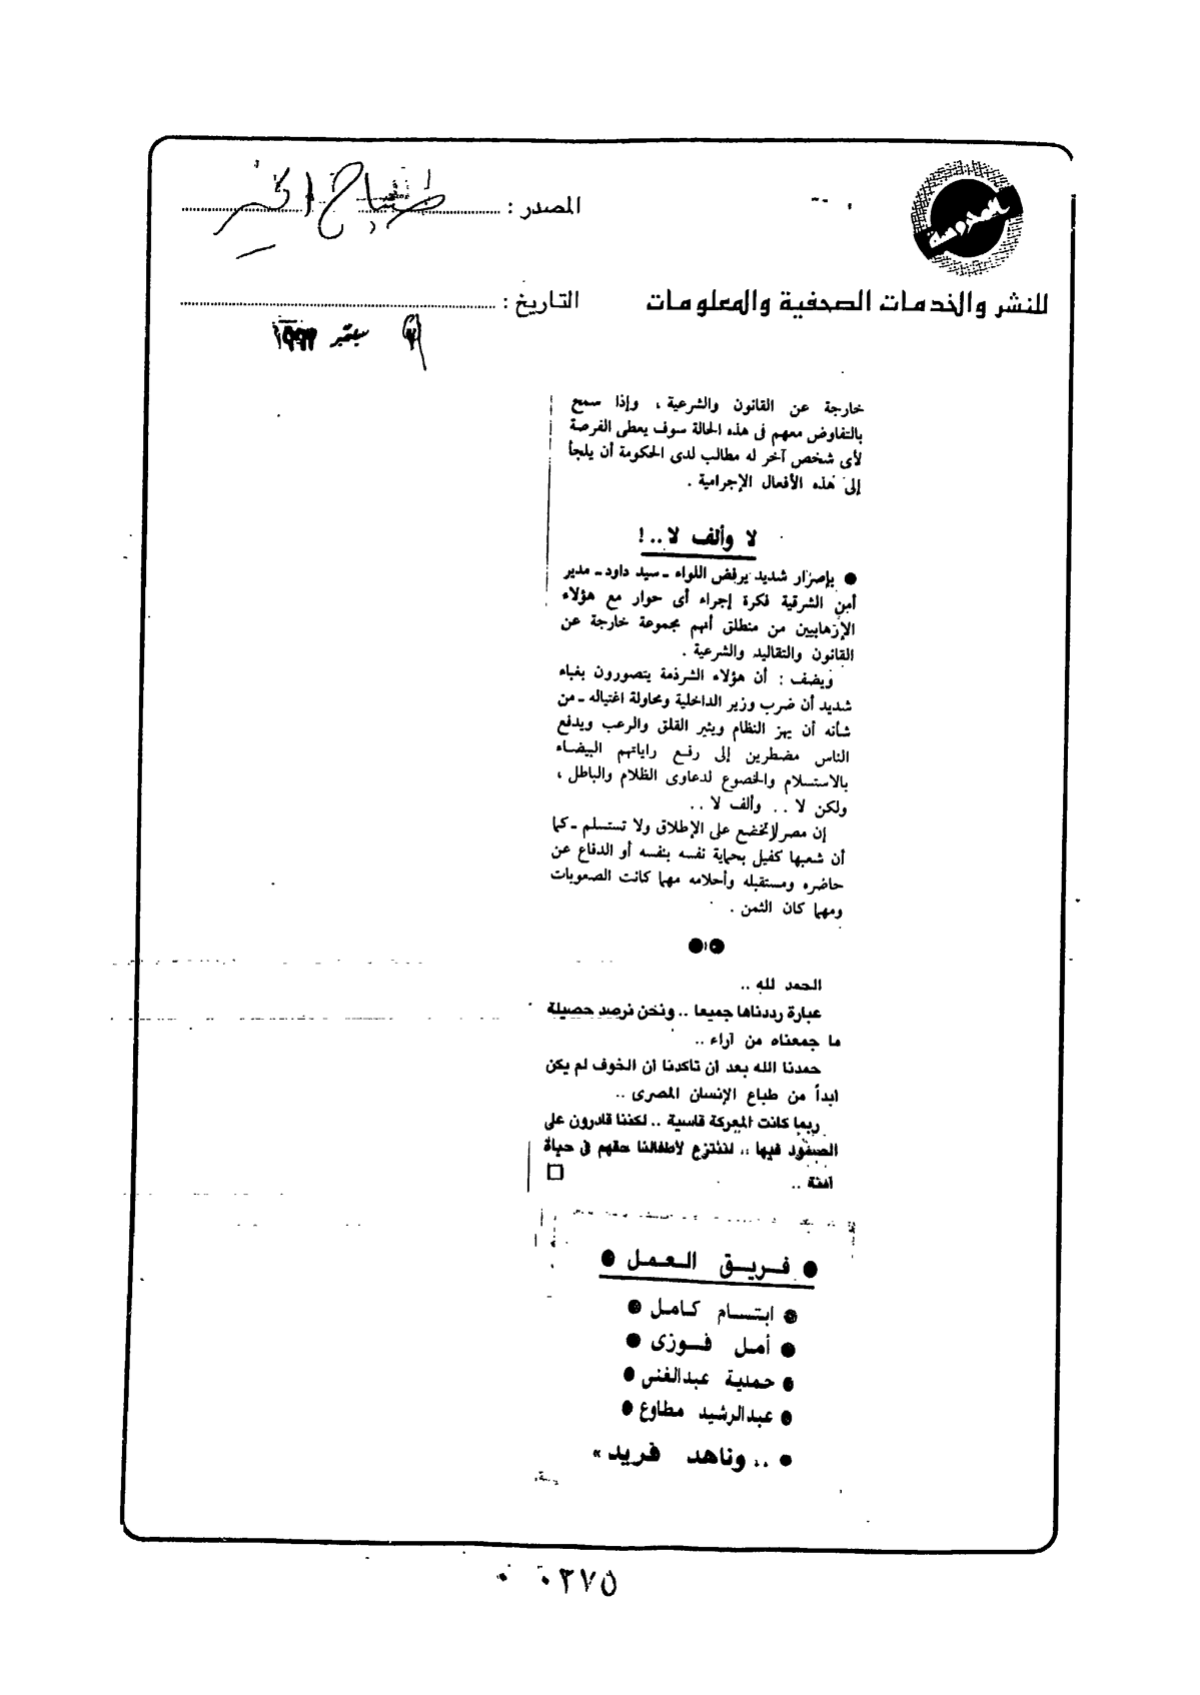 المصدر : صباح الخير
للنشر والخدمات الصحفية والمعلومات
التاريخ :
سبتمبر ١٩٩٣
خارجة عن القانون والشرعية ، وإذا سمح
بالتفاوض معهم فى هذه الحالة سوف يعطى الفرصة
لأى شخص آخر له مطالب لدى الحكومة أن يلجأ
إلى هذه الأفعال الإجرامية .
لا وألف لا ..!
● بإصرار شديد يرفض اللواء ـ سيد داود ـ مدير
أمن الشرقية فكرة إجراء أى حوار مع هؤلاء
الإرهابيين من منطلق أنهم مجموعة خارجة عن
القانون والتقاليد والشرعية .
ويضف : أن هؤلاء الشرذمة يتصورون بغباء
شديد أن ضرب وزير الداخلية ومحاولة اغتياله ـ من
شأنه أن يهز النظام ويثير القلق والرعب ويدفع
الناس مضطرين إلى رفع راياتهم البيضاء
بالاستسلام والخضوع لدعاوى الظلام والباطل ،
ولكن لا .. وألف لا ..
إن مصر لا تخضع على الإطلاق ولا تستسلم ـ كما
أن شعبها كفيل بحماية نفسه بنفسه أو الدفاع عن
حاضره ومستقبله وأحلامه مهما كانت الصعوبات
ومهما كان الثمن .
●●
الحمد لله ..
عبارة رددناها جميعا .. ونحن نرصد حصيلة
ما جمعناه من آراء ..
حمدنا الله بعد أن تأكدنا أن الخوف لم يكن
أبداً من طباع الإنسان المصرى ..
ربما كانت المعركة قاسية .. لكننا قادرون على
الصمود فيها .. لننتزع لأطفالنا حقهم فى حياة
آمنة .. □
● فريق العمل ●
● ابتسام كامل ●
● أمل فوزى ●
● حمدية عبدالغنى ●
● عبدالرشيد مطاوع ●
● .. وناهد فريد »
٠٠٢٧٥